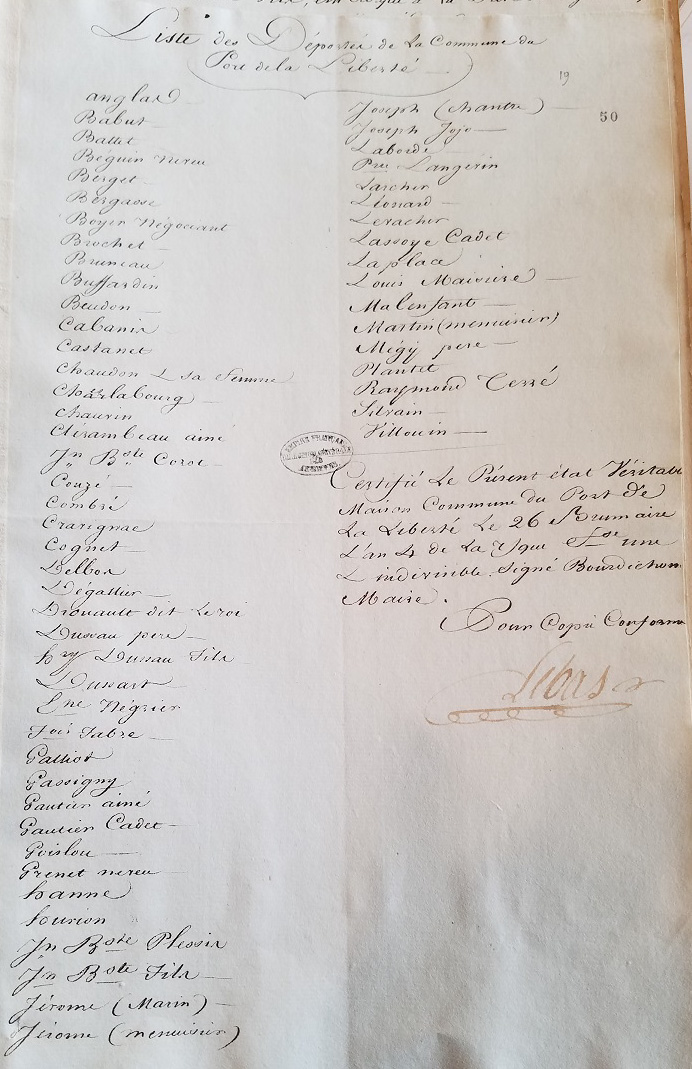 Liste des Déportés de la Commune du
Port de la Liberté
19
50
anglad
Babut
Battet
Beguin neveu
Berget
Bergasse
Boyer Négociant
Brochet
Bruneau
Buffardin
Beudon
Cabanis
Castanet
Chaudon & sa femme
Charlabourg
Chaurin
Clérambeau ainé
Jn Bste Corot
Couzé
Combré
Crarignac
Cognet
Delbos
Dégallier
Drouault dit Leroi
Duseau pere
hry Dussau Fils
Dussart
Ene Négrier
Fois Fabre
Galliot
Gassigny
Gautier ainé
Gautier Cadet
Goislou
Grenet neveu
hanne
hourion
Jn Bste Plessis
Jn Bste Fils
Jérome (Marin)
Jérome (menuisier)
Joseph (chantre)
Joseph Jojo
Laborde
Pre Langerin
Larcher
Léonard
Levacher
Lassoye Cadet
Laplace
Louis Maisière
Malenfant
Martin (menuisier)
Mégy pere
Plantet
Raymond Terré
Silvain
Villouin
Certifié le Présent état Véritable
Maison Commune du Port de
La Liberté le 26 Brumaire
L'an 4 de la Rque fse une
& indivisible. Signé Bourdichon
Maire.
Pour Copie Conforme
Lebas